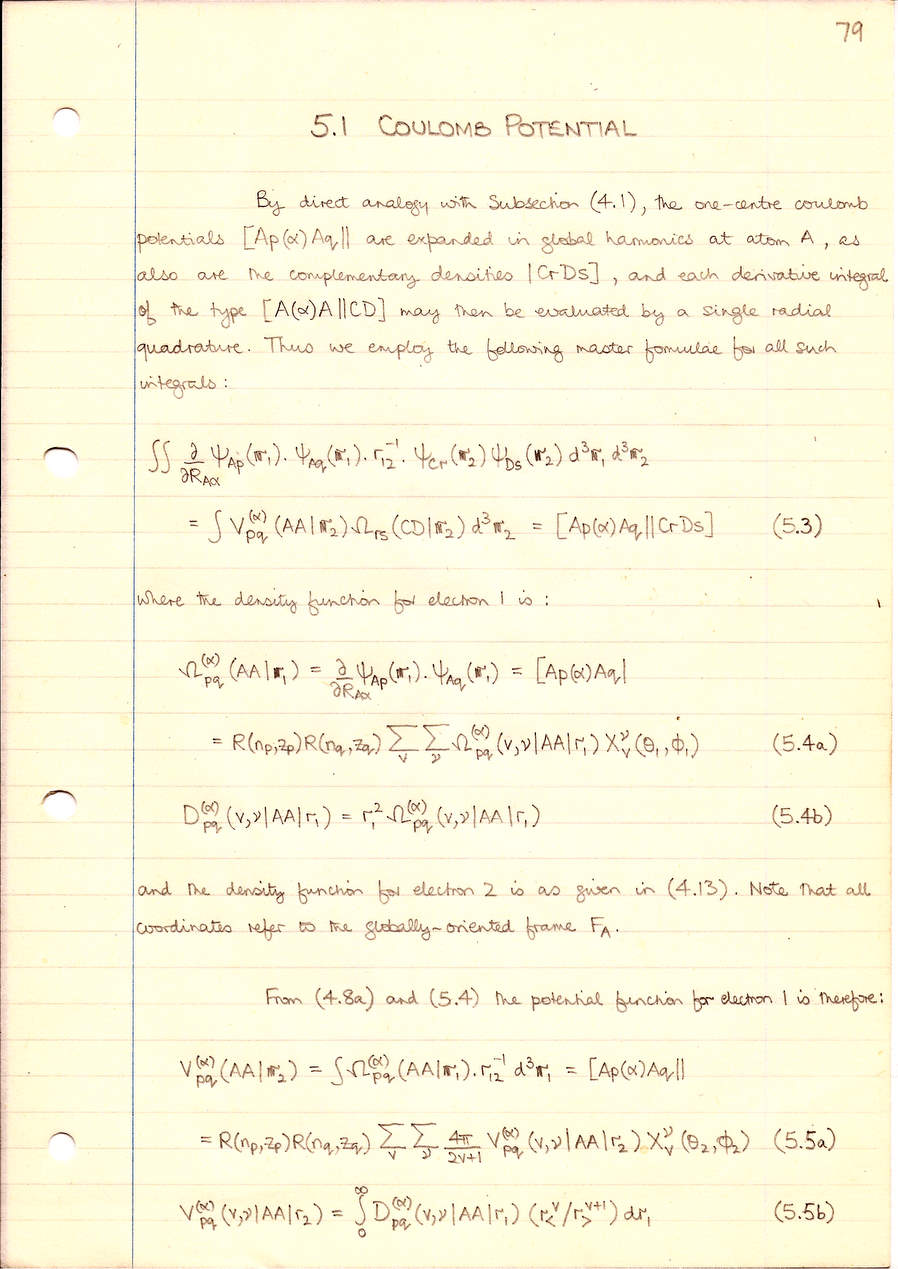 79
5.1 COULOMB POTENTIAL
By direct analogy with Subsection (4.1), the one-centre coulomb
potentials [Ap(α)Aq|| are expanded in global harmonics at atom A, as
also are the complementary densities |CrDs], and each derivative integral
of the type [A(α)A||CD] may then be evaluated by a single radial
quadrature. Thus we employ the following master formulae for all such
integrals:
∬ ∂/∂R_Aα ψ_Ap(r₁). ψ_Aq(r₁). r₁₂⁻¹. ψ_Cr(r₂) ψ_Ds(r₂) d³r₁ d³r₂
= ∫ V_pq^(α) (AA|r₂) Ω_rs (CD|r₂) d³r₂ = [Ap(α)Aq||CrDs] (5.3)
where the density function for electron 1 is:
Ω_pq^(α) (AA|r₁) = ∂/∂R_Aα ψ_Ap(r₁). ψ_Aq(r₁) = [Ap(α)Aq|
= R(n_p,z_p)R(n_q,z_q) ∑_v ∑_ν Ω_pq^(α) (v,ν|AA|r₁) X_v^ν (θ₁,ϕ₁) (5.4a)
D_pq^(α) (v,ν|AA|r₁) = r₁² Ω_pq^(α) (v,ν|AA|r₁) (5.4b)
and the density function for electron 2 is as given in (4.13). Note that all
coordinates refer to the globally-oriented frame F_A.
From (4.8a) and (5.4) the potential function for electron 1 is therefore:
V_pq^(α) (AA|r₂) = ∫ Ω_pq^(α) (AA|r₁). r₁₂⁻¹ d³r₁ = [Ap(α)Aq||
= R(n_p,z_p)R(n_q,z_q) ∑_v ∑_ν 4π/2v+1 V_pq^(α) (v,ν|AA|r₂) X_v^ν (θ₂,ϕ₂) (5.5a)
V_pq^(α) (v,ν|AA|r₂) = ∫₀^∞ D_pq^(α) (v,ν|AA|r₁) (r_<^v/r_>^v+1) dr₁ (5.5b)